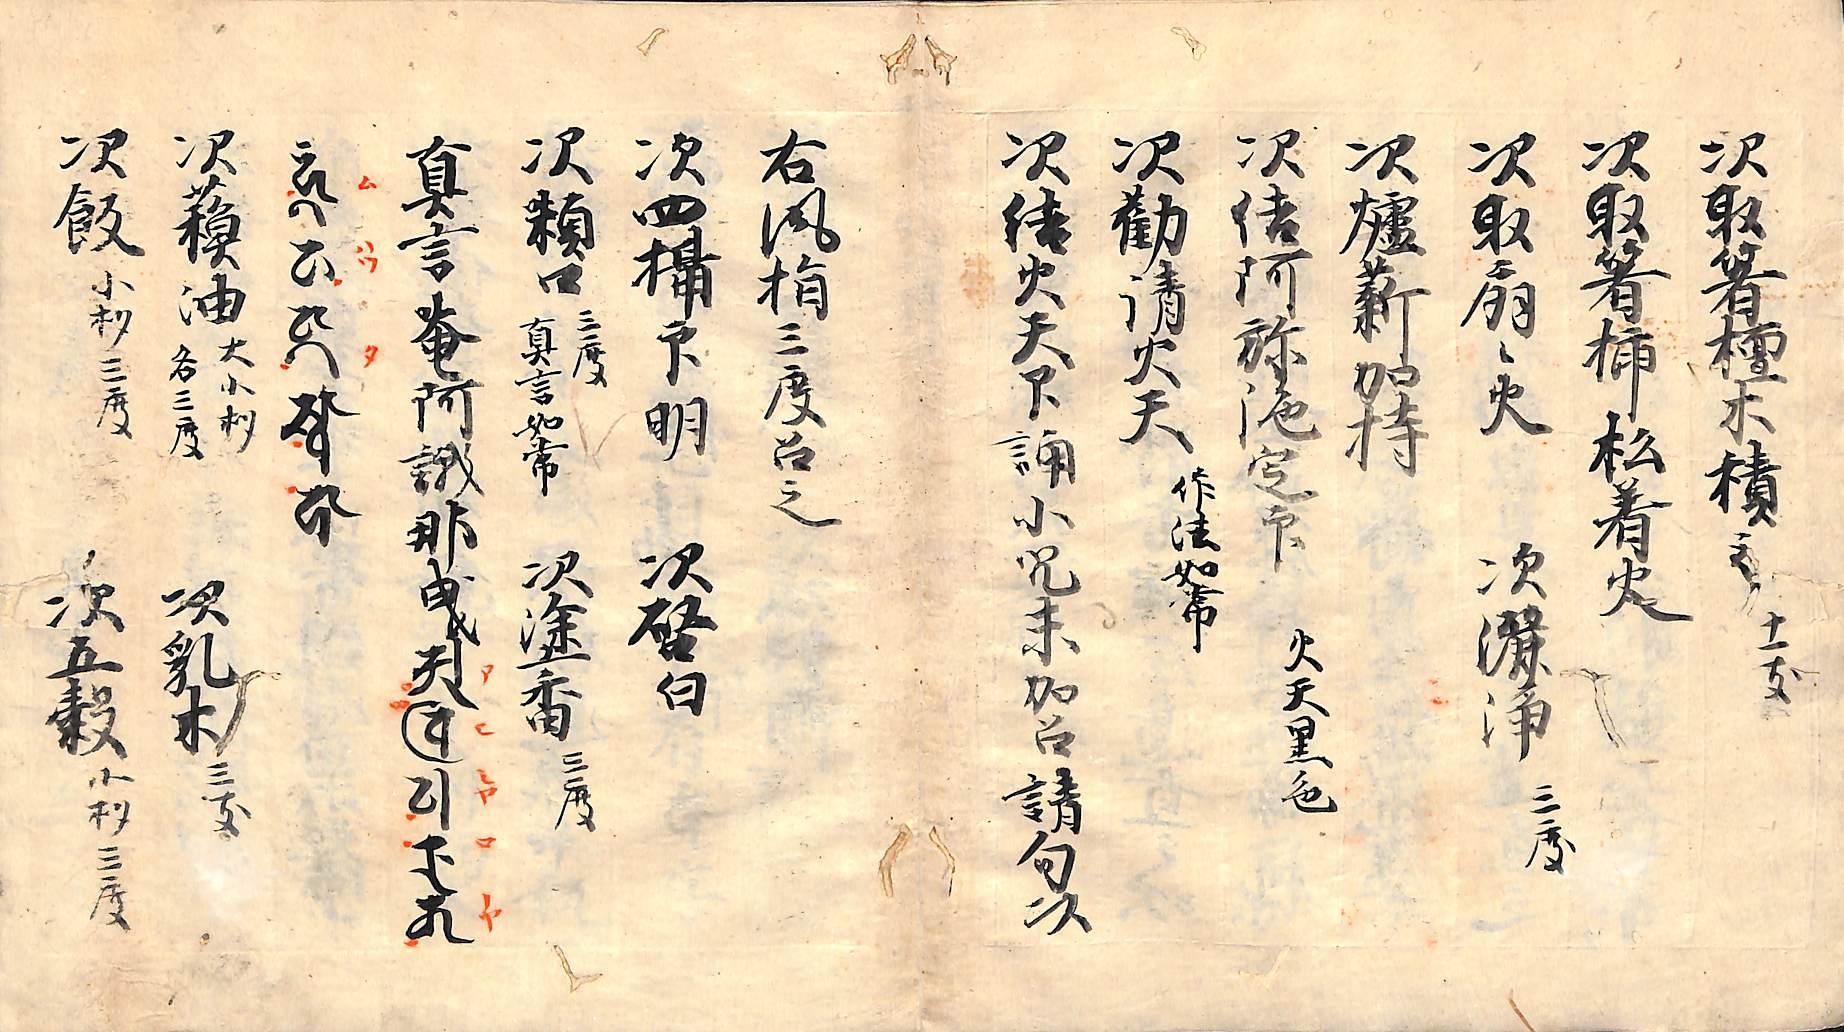 次取箸檀木積之 十一支
次取箸挿松着火
次取扇〻火 次灑浄 三度
次爐薪加持
次結阿弥陀定印 火天黒色
次勧請火天 作法如常
次結火天印誦小咒末加召請句次
右風指三度召之
次四攝印明 次啓白
次嗽口 三度 真言如常 次塗香 三度
真言 唵阿誐那曳
ア ヒ ラ ロ ヤ
ム ソワ タ
次蘓油 大小杓 各三度 次乳木 三支
次飯 小杓三度 次五穀 小杓三度